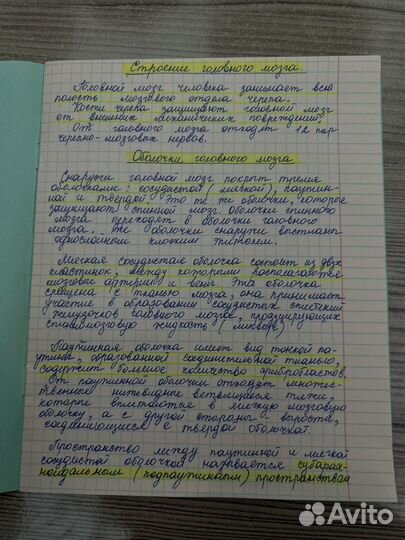 Строение головного мозга.
Головной мозг человека занимает всю
полость мозгового отдела черепа.
Кости черепа защищают головной мозг
от внешних механических повреждений.
От головного мозга отходят 12 пар
черепно-мозговых нервов.
Оболочки головного мозга
Снаружи головной мозг покрыт тремя
оболочками: сосудистой (мягкой), паутин-
ной и твердой. Это те же оболочки, которые
защищают спинной мозг. Оболочки спинного
мозга переходят в оболочки головного
мозга. Все оболочки снаружи выстланы
однослойным плоским эпителием.
Мягкая сосудистая оболочка состоит из двух
пластинок, между которыми располагаются
мозговые артерии и вены. Эта оболочка
сращена с тканью мозга, она принимает
участие в образовании сосудистых сплетений
желудочков головного мозга, продуцирующих
спинномозговую жидкость (ликвор)
Паутинная оболочка имеет вид тонкой па-
утины, образованной соединительной тканью,
содержит большое количество фибробластов.
От паутинной оболочки отходят множес-
твенные нитевидные ветвящиеся тяжи,
которые вплетаются в мягкую мозговую
оболочку, а с другой стороны - выросты,
соединяющиеся с твердой оболочкой.
Пространство между паутинной и мягкой
сосудистой оболочкой называется субарах-
ноидальным (подпаутинным) пространством
Avito